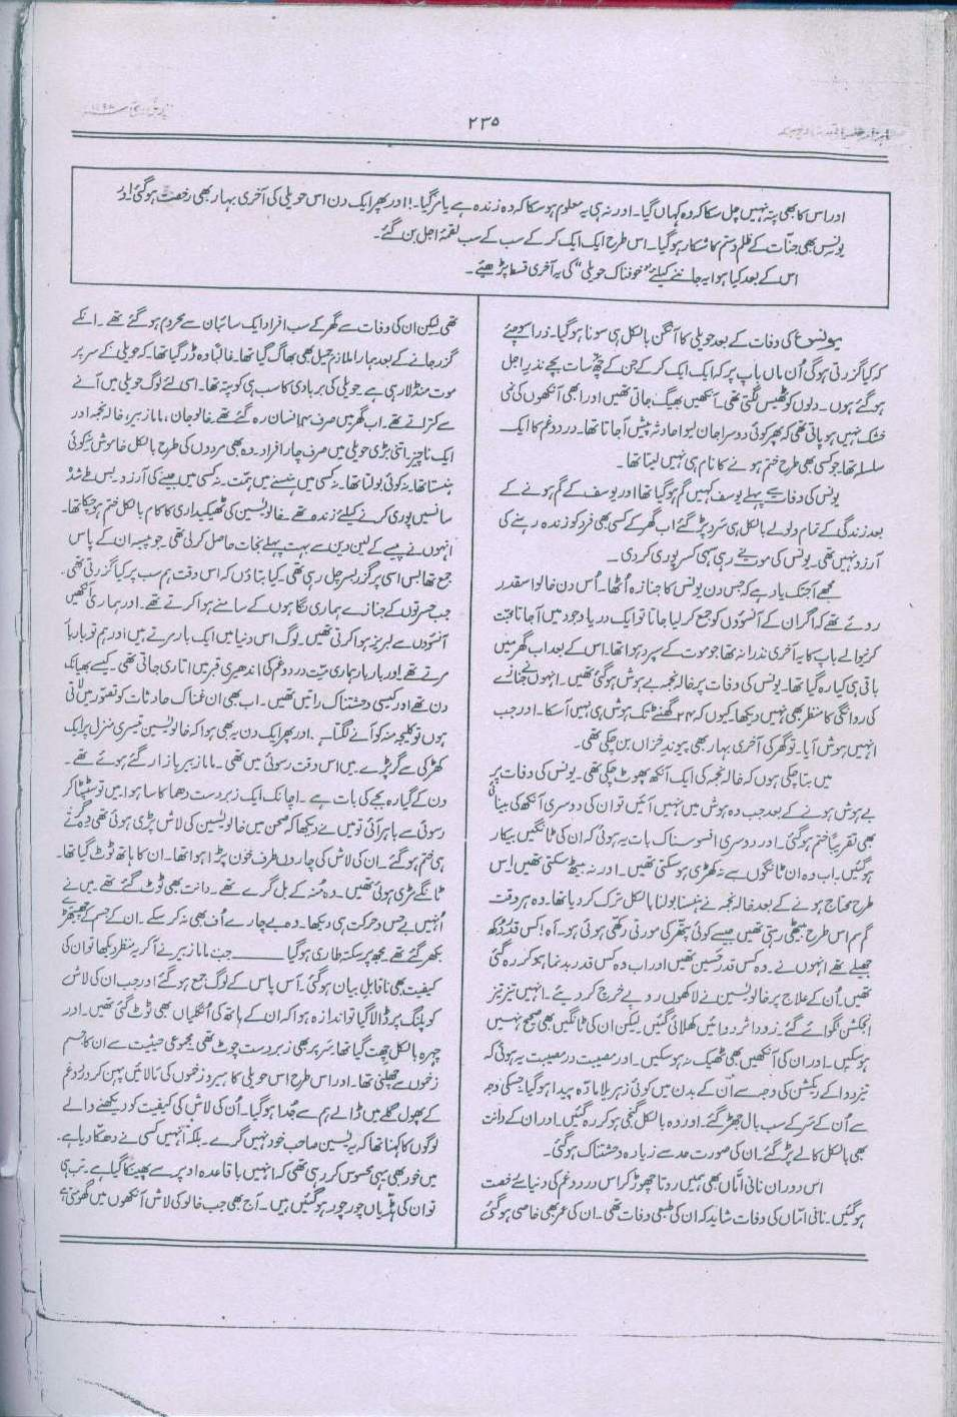 ۲۳۵
اور اس کا بھی پتہ نہیں چل سکا کہ وہ کہاں گیا۔ اور نہ ہی یہ معلوم ہو سکا کہ وہ زندہ ہے یا مر گیا۔! اور پھر ایک دن اس حویلی کی آخری بہار بھی رخصت ہو گئی! اور
یونس بھی جنّات کے ظلم و ستم کا شکار ہو گیا۔ اس طرح ایک ایک کر کے سب کے سب لقمۂ اجل بن گئے۔
اس کے بعد کیا ہوا یہ جاننے کیلئے "خوفناک حویلی" کی یہ آخری قسط پڑھیئے۔
یونس کی وفات کے بعد حویلی کا آنگن بالکل ہی سونا ہو گیا۔ ذرا سوچئے
کہ کیا گزرتی ہوگی اُن ماں باپ پر کہ ایک ایک کر کے جن کے چھ سات بچے نذرِ اجل
ہو گئے ہوں۔ دلوں کو ٹھیس لگتی تھی۔ آنکھیں بھیگ جاتی تھیں اور ابھی آنکھوں کی نمی
خشک نہیں ہو پاتی تھی کہ پھر کوئی دوسرا جان لیوا حادثہ پیش آ جاتا تھا۔ درد و غم کا ایک
سلسلہ تھا جو کسی بھی طرح ختم ہونے کا نام ہی نہیں لیتا تھا۔
یونس کی وفات سے پہلے یوسف کہیں گم ہو گیا تھا اور یوسف کے گم ہونے کے
بعد زندگی کے تمام ولولے بالکل ہی سرد پڑ گئے اب گھر کے کسی بھی فرد کو زندہ رہنے کی
آرزو نہیں تھی۔ یونس کی موت نے رہی سہی کسر پوری کر دی۔
مجھے آج تک یاد ہے کہ جس دن یونس کا جنازہ اُٹھا۔ اُس دن خالو اسقدر
روئے تھے کہ اگر ان کے آنسوؤں کو جمع کر لیا جاتا تو ایک دریا وجود میں آ جاتا محبت
کرنیوالے باپ کا یہ آخری نذرانہ تھا جو موت کے سپرد ہوا تھا۔ اس کے بعد اب گھر میں
باقی ہی کیا رہ گیا تھا۔ یونس کی وفات پر خالہ نجمہ بے ہوش ہو گئی تھیں۔ انہوں نے جنازے
کی روانگی کا منظر بھی نہیں دیکھا۔ کیوں کہ ۲۴ گھنٹے تک ہوش ہی نہیں آسکا۔ اور جب
انہیں ہوش آیا۔ تو گھر کی آخری بہار بھی پیوندِ خزاں بن چکی تھی۔
میں بتا چکی ہوں کہ خالہ نجمہ کی ایک آنکھ پھوٹ چکی تھی۔ یونس کی وفات پر
بے ہوش ہونے کے بعد جب وہ ہوش میں نہیں آئیں تو ان کی دوسری آنکھ کی بینائی
بھی تقریباً ختم ہو گئی۔ اور دوسری افسوسناک بات یہ ہوئی کہ ان کی ٹانگیں بیکار
ہو گئیں۔ اب وہ ان ٹانگوں سے نہ کھڑی ہو سکتی تھیں۔ اور نہ بیٹھ سکتی تھیں اس
طرح محتاج ہونے کے بعد خالہ نجمہ نے ہنسنا بولنا بالکل ترک کر دیا تھا۔ وہ ہر وقت
گم سم اس طرح بیٹھی رہتی تھیں جیسے کوئی پتھر کی مورتی رکھی ہوئی ہو۔ آہ! کس قدر دُکھ
جھیلے تھے انہوں نے۔ وہ کس قدر حسین تھیں اور اب وہ کس قدر بدنما ہو کر رہ گئی
تھیں۔ اُن کے علاج پر خالو یٰسین نے لاکھوں روپے خرچ کر دیئے۔ انہیں تیز تیز
انجکشن لگوائے گئے۔ زود اثر دوائیں کھلائی گئیں۔ لیکن ان کی ٹانگیں بھی صحیح نہیں
ہو سکیں۔ اور ان کی آنکھیں بھی ٹھیک نہ ہو سکیں۔ اور مصیبت در مصیبت یہ ہوئی کہ
تیز دوا کے ری ایکشن کی وجہ سے اُن کے بدن میں کوئی زہریلا مادّہ پیدا ہو گیا جسکی وجہ
سے اُن کے سر کے سب بال جھڑ گئے۔ اور وہ بالکل گنجی ہو کر رہ گئیں۔ اور ان کے دانت
بھی بالکل کالے پڑ گئے۔ ان کی صورت حد سے زیادہ وحشتناک ہو گئی۔
اس دوران نانی امّاں بھی ہمیں روتا چھوڑ کر اس درد و غم کی دنیا سے رخصت
ہو گئیں۔ نانی امّاں کی وفات شاید کہ ان کی طبعی وفات تھی۔ ان کی عمر بھی خاصی ہو گئی
تھی لیکن ان کی وفات سے گھر کے سب افراد ایک سائبان سے محروم ہو گئے تھے۔ انکے
گزر جانے کے بعد ہمارا ملازم جمیل بھی بھاگ گیا تھا۔ غالباً وہ ڈر گیا تھا۔ کہ حویلی کے سر پر
موت منڈلا رہی ہے۔ حویلی کی بربادی کا سب ہی کو پتہ تھا۔ اسی لئے لوگ حویلی میں آنے
سے کتراتے تھے۔ اب گھر میں صرف ۴ انسان رہ گئے تھے۔ خالو جان، ماما زبیر، خالہ نجمہ اور
ایک ناچیز اتنی بڑی حویلی میں صرف چار افراد۔ وہ بھی مردوں کی طرح بالکل خاموش نہ کوئی
ہنستا تھا۔ نہ کوئی بولتا تھا۔ نہ کسی میں ہنسنے میں ہمّت۔ نہ کسی میں جینے کی آرزو۔ بس طے شدہ
سانسیں پوری کرنے کیلئے زندہ تھے۔ خالو یٰسین کی ٹھیکیداری کا کام بالکل ختم ہو چکا تھا۔
انہوں نے پیسے کے لین دین سے بہت پہلے نجات حاصل کر لی تھی۔ جو پیسہ ان کے پاس
جمع تھا بس اسی پر گزر بسر چل رہی تھی۔ کیا بتاؤں کہ اس وقت ہم سب پر کیا گزرتی تھی۔
جب حسرتوں کے جنازے ہماری نگاہوں کے سامنے ہوا کرتے تھے۔ اور ہماری آنکھیں
آنسوؤں سے لبریز ہوا کرتی تھیں۔ لوگ اس دنیا میں ایک بار مرتے ہیں اور ہم تو بارہا
مرتے تھے اور بار بار ہماری میّت درد و غم کی اندھیری قبر میں اتاری جاتی تھی۔ کیسے بھیانک
دن تھے اور کیسی وحشتناک راتیں تھیں۔ اب بھی ان غمناک حادثات کو تصوّر میں لاتی
ہوں تو کلیجہ منہ کو آنے لگتا ہے۔ اور پھر ایک دن یہ بھی ہوا کہ خالو یٰسین تیسری منزل پر ایک
کھڑکی سے گر پڑے۔ میں اس وقت رسوئی میں تھی۔ ماما زبیر بازار گئے ہوئے تھے۔
دن کے گیارہ بجے کی بات ہے۔ اچانک ایک زبردست دھماکا سا ہوا میں تو سٹپٹا کر
رسوئی سے باہر آئی تو میں نے دیکھا کہ صحن میں خالو یٰسین کی لاش پڑی ہوئی تھی وہ گرتے
ہی ختم ہو گئے۔ ان کی لاش کی چاروں طرف خون پڑا ہوا تھا۔ ان کا ہاتھ ٹوٹ گیا تھا۔
ٹانگیں مڑی ہوئی تھیں۔ وہ منہ کے بل گرے تھے۔ دانت بھی ٹوٹ گئے تھے۔ میں نے
اُنہیں بے حس و حرکت ہی دیکھا۔ وہ بے چارے اُف بھی نہ کر سکے۔ ان کے جسم کے چیتھڑے
بکھر گئے تھے۔ مجھ پر سکتہ طاری ہو گیا ــــــــ جب ماما زبیر نے آ کر یہ منظر دیکھا تو ان کی
کیفیت بھی ناقابلِ بیان ہو گئی۔ آس پاس کے لوگ جمع ہو گئے اور جب ان کی لاش
کو پلنگ پر ڈالا گیا تو اندازہ ہوا کہ ان کے ہاتھ کی اُنگلیاں بھی ٹوٹ گئی تھیں۔ اور
چہرہ بالکل پھٹ گیا تھا۔ سر پر بھی زبردست چوٹ تھی۔ مجموعی حیثیت سے ان کا جسم
زخموں سے چھلنی تھا۔ اور اس طرح اس حویلی کا ہیرو زخموں کی مالائیں پہن کر درد و غم
کے پھول گلے میں ڈالے ہم سے جُدا ہو گیا۔ اُن کی لاش کی کیفیت کو دیکھنے والے
لوگوں کا کہنا تھا کہ یٰسین صاحب خود نہیں گرے۔ بلکہ اُنہیں کسی نے دھکا دیا ہے۔
میں خود بھی یہی محسوس کر رہی تھی کہ انہیں باقاعدہ اوپر سے پھینکا گیا ہے۔ تب ہی
تو ان کی ہڈیاں چور چور ہو گئیں ہیں۔ آج بھی جب خالو کی لاش آنکھوں میں گھومتی ہے